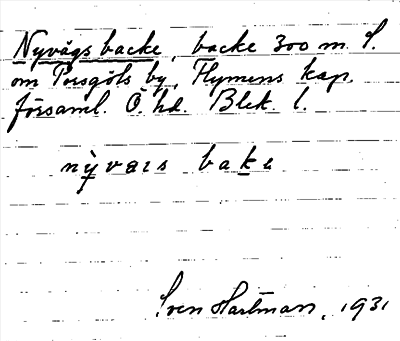 Nyvägsbacke, backe 300 m. S.
om Porsgöls by, Flymens kap.
församl. Ö. hd. Blek. l.
nỳvæɪs bakɛ
Sven Hartman, 1931